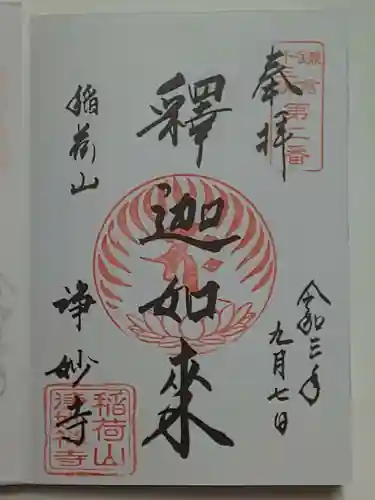 奉拝
第二番
釋迦如來
稲荷山
淨妙寺
令和三年
九月七日
稲荷山
淨妙寺